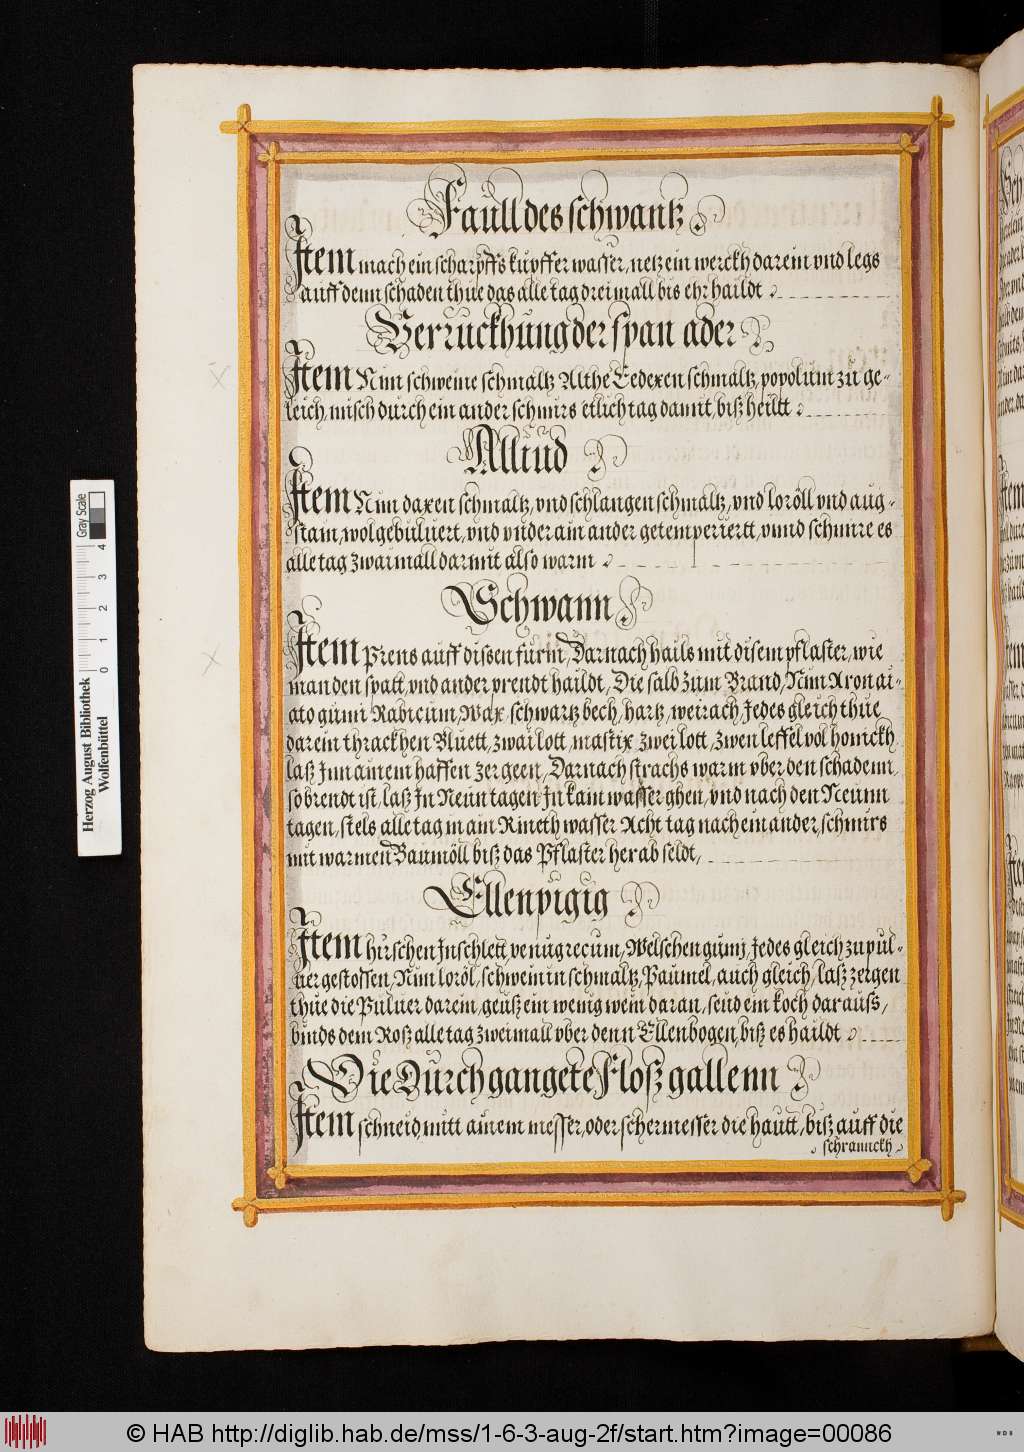 Faüll des schwantz
Item mach ein scharpffs kupffer wasser, netz ein werckh darein vnd legs
auff denn schaden thue das alle tag drei mall bis ehr haildt
Verruckhung der span ader
Item Nim schweine schmaltz Althe Eedexen schmaltz, popolum zu ge-
leich, misch durch ein ander schmirs etlich tag damit, biß heiltt
Alliud
Item Nim daxen schmaltz, vnd schlangen schmaltz, vnd loröll vnd aug-
stain, wol gebuluert, vnd vnder ain ander getemperiertt, vnnd schmire es
alle tag zwaimall darmit also warm
Schwann
Item Prens auff dissen furm, Darnach hails mit disem pflaster, wie
man den spatt, vnd ander prendt haildt, Die salb zum Brand, Nim Aron ai-
ato gumi Rabicum, Wax, schwartz bech, hartz, weirach, Jedes gleich thue
darein thrackhen Bluett, zwai lott, mastix zwei lott, zwen leffel vol honickh
laß Inn ainem haffen zergeen, Darnach strachs warm vber den schadenn,
so brendt ist, laß In Neün tagen In kain wasser ghen, vnd nach den Neünn
tagen, stels alle tag in ain Rineth wasser Acht tag nach ein ander, schmirs
mit warmen Baumöll biß das Pflaster herab feldt,
Ellenpigig
Item hirschen Inschlett venugrecum, Welschen gumj, Jedes gleich zu pul-
uer gestossen, Nim loröl, schweinin schmaltz, Paumel, auch gleich, laß zergen
thue die Puluer darein, geüß ein wenig wein daran, seud ein koch darauss,
binds dem Roß alle tag zweimall vber denn Ellenbogen, biß es haildt
Die Durchgangete Floß gallenn
Item schneid mitt ainem messer, oder schermesser die hautt, biß auff die
schranckh
Herzog August Bibliothek
Wolfenbüttel
0 1 2 3 4
Gray Scale
© HAB http://diglib.hab.de/mss/1-6-3-aug-2f/start.htm?image=00086